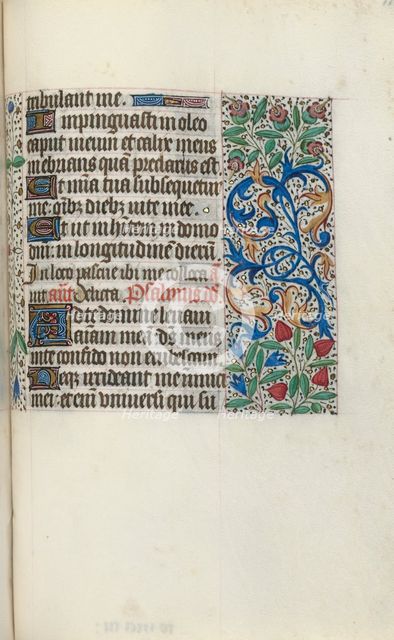 tribulant me.
Impinguasti in oleo
caput meum et calix meus
inebrians quā preclarus est
Et mīa tua subsequetur
me oībz diebz vite mee.
Et ut inhītem in domo
dnī: in longitudinē dierū
In loco pascue ibi me collocauit a
uit añ. Delicta. Psalmus dd.
Ad te domine leuaui
animam meā ds meus
in te confido non erubescam
Neqz irrideant me inimici
mei: et eniī vniuersi qui su
Heritage
Heritage